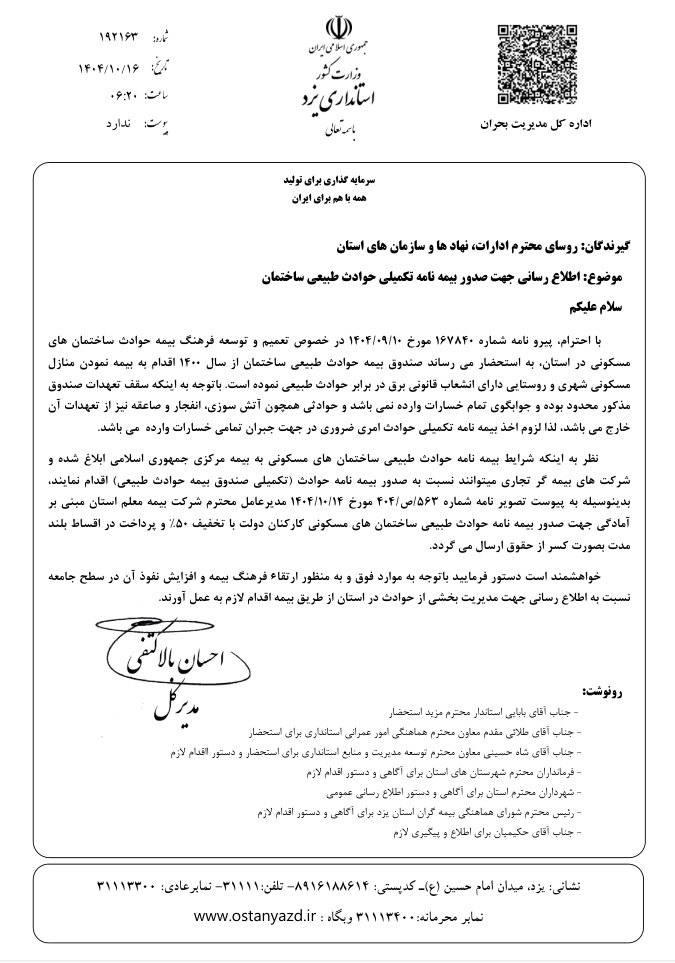 جمهوری اسلامی ایران
وزارت کشور
استانداری یزد
باسمه تعالی
اداره کل مدیریت بحران
شماره: ۱۹۲۱۶۳
تاریخ: ۱۴۰۴/۱۰/۱۶
ساعت: ۰۶:۲۰
پیوست: ندارد
سرمایه گذاری برای تولید
همه با هم برای ایران
گیرندگان: روسای محترم ادارات، نهاد ها و سازمان های استان
موضوع: اطلاع رسانی جهت صدور بیمه نامه تکمیلی حوادث طبیعی ساختمان
سلام علیکم
با احترام، پیرو نامه شماره ۱۶۷۸۴۰ مورخ ۱۴۰۴/۰۹/۱۰ در خصوص تعمیم و توسعه فرهنگ بیمه حوادث ساختمان های
مسکونی در استان، به استحضار می رساند صندوق بیمه حوادث طبیعی ساختمان از سال ۱۴۰۰ اقدام به بیمه نمودن منازل
مسکونی شهری و روستایی دارای انشعاب قانونی برق در برابر حوادث طبیعی نموده است. باتوجه به اینکه سقف تعهدات صندوق
مذکور محدود بوده و جوابگوی تمام خسارات وارده نمی باشد و حوادثی همچون آتش سوزی، انفجار و صاعقه نیز از تعهدات آن
خارج می باشد، لذا لزوم اخذ بیمه نامه تکمیلی حوادث امری ضروری در جهت جبران تمامی خسارات وارده می باشد.
نظر به اینکه شرایط بیمه نامه حوادث طبیعی ساختمان های مسکونی به بیمه مرکزی جمهوری اسلامی ابلاغ شده و
شرکت های بیمه گر تجاری میتوانند نسبت به صدور بیمه نامه حوادث (تکمیلی صندوق بیمه حوادث طبیعی) اقدام نمایند،
بدینوسیله به پیوست تصویر نامه شماره ۵۶۳/ص/۴۰۴ مورخ ۱۴۰۴/۱۰/۱۴ مدیرعامل محترم شرکت بیمه معلم استان مبنی بر
آمادگی جهت صدور بیمه نامه حوادث طبیعی ساختمان های مسکونی کارکنان دولت با تخفیف ۵۰٪ و پرداخت در اقساط بلند
مدت بصورت کسر از حقوق ارسال می گردد.
خواهشمند است دستور فرمایید باتوجه به موارد فوق و به منظور ارتقاء فرهنگ بیمه و افزایش نفوذ آن در سطح جامعه
نسبت به اطلاع رسانی جهت مدیریت بخشی از حوادث در استان از طریق بیمه اقدام لازم به عمل آورند.
احسان بالاکتفی
مدیرکل
رونوشت:
- جناب آقای بابایی استاندار محترم مزید استحضار
- جناب آقای طلائی مقدم معاون محترم هماهنگی امور عمرانی استانداری برای استحضار
- جناب آقای شاه حسینی معاون محترم توسعه مدیریت و منابع استانداری برای استحضار و دستور ااقدام لازم
- فرمانداران محترم شهرستان های استان برای آگاهی و دستور اقدام لازم
- شهرداران محترم استان برای آگاهی و دستور اطلاع رسانی عمومی
- رئیس محترم شورای هماهنگی بیمه گران استان یزد برای آگاهی و دستور اقدام لازم
- جناب آقای حکیمیان برای اطلاع و پیگیری لازم
نشانی: یزد، میدان امام حسین (ع)ـ کدپستی: ۸۹۱۶۱۸۸۶۱۴– تلفن:۳۱۱۱۱– نمابرعادی: ۳۱۱۱۳۳۰۰
نمابر محرمانه:۳۱۱۱۳۴۰۰ وبگاه : www.ostanyazd.ir